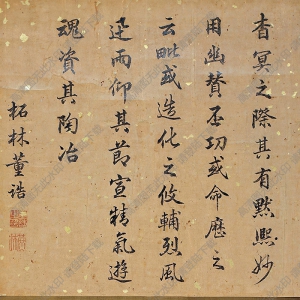 杳冥之際其有默熙妙
用幽贊否功或命歷之
云毗或造化之攸輔烈風
迅雨仰其節宣精氣遊
魂資其陶冶
柘林董誥